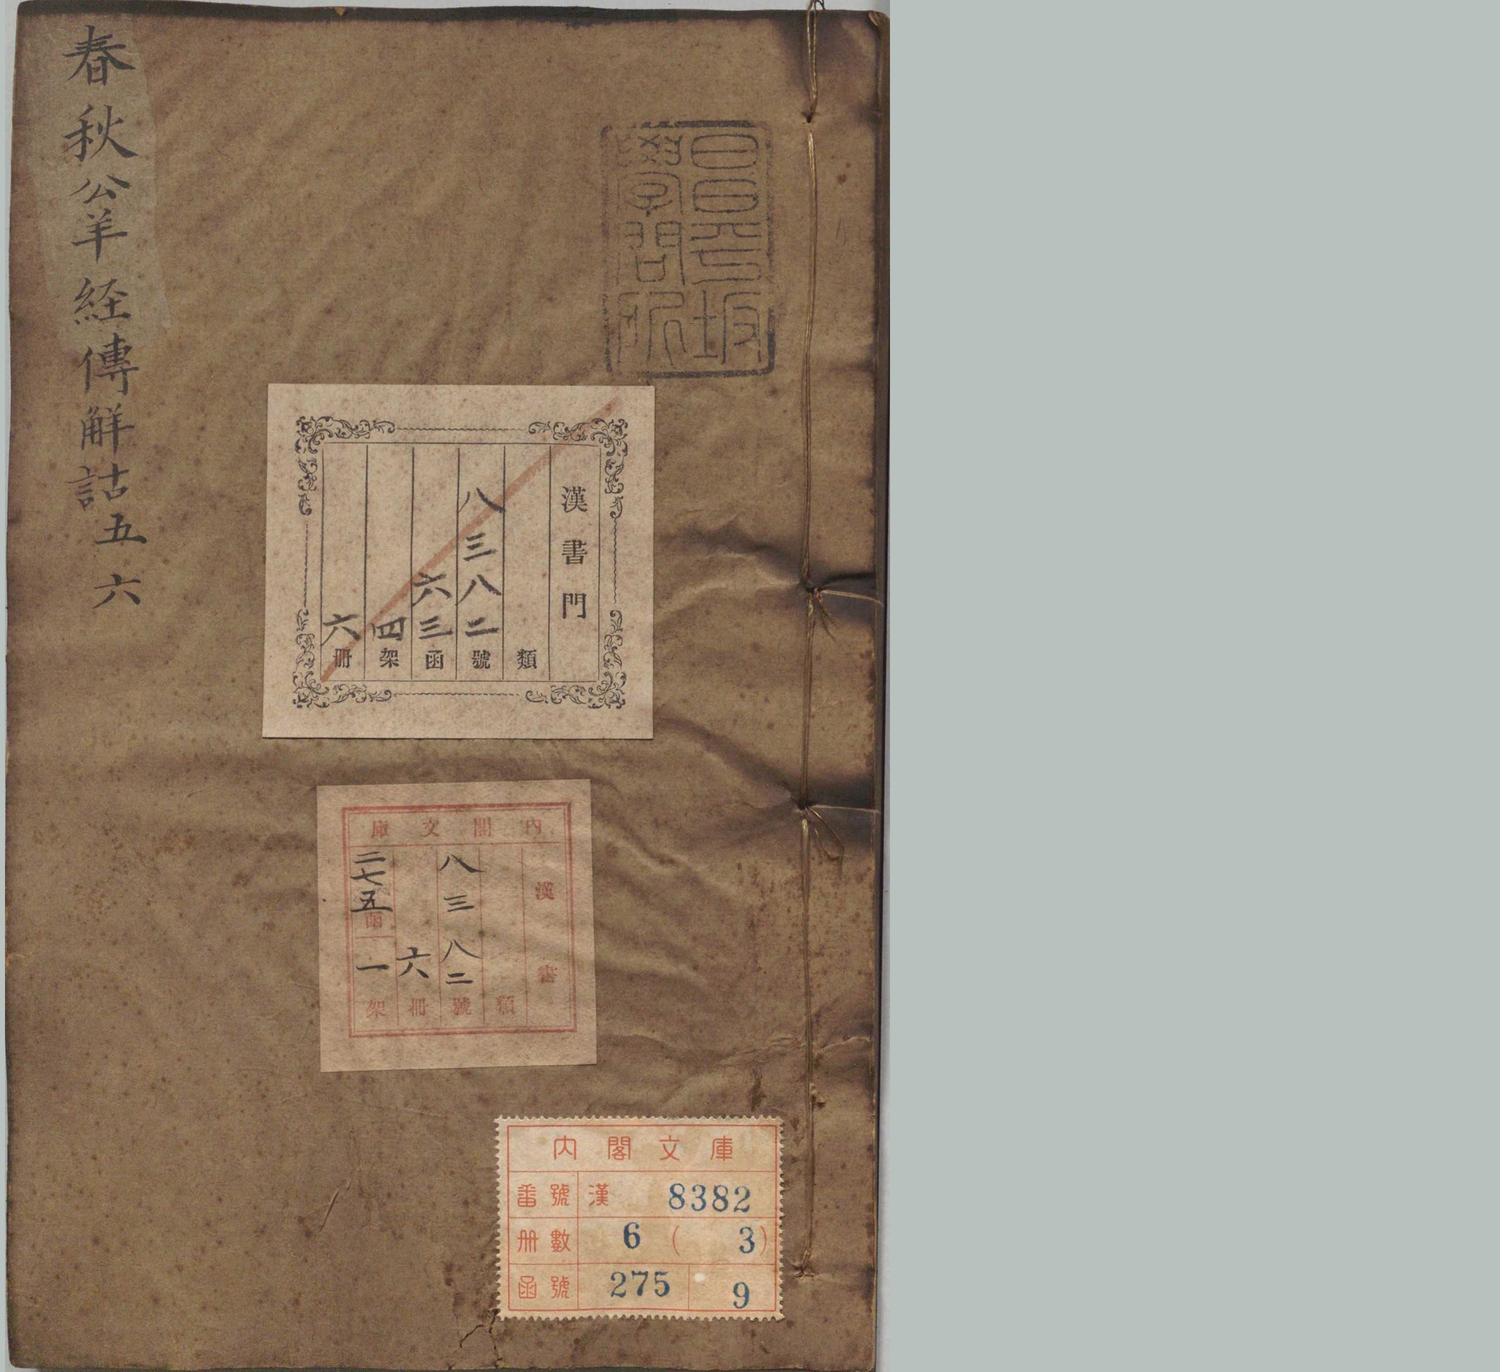 春秋公羊経傳解詁五六
昌平坂
學問所
漢書門
類
八三八二號
六三函
四架
六冊
內閣文庫
漢書
類
八三八二號
六冊
二七五函
一架
內閣文庫
番號 漢 8382
冊數 6 ( 3)
函號 275 9